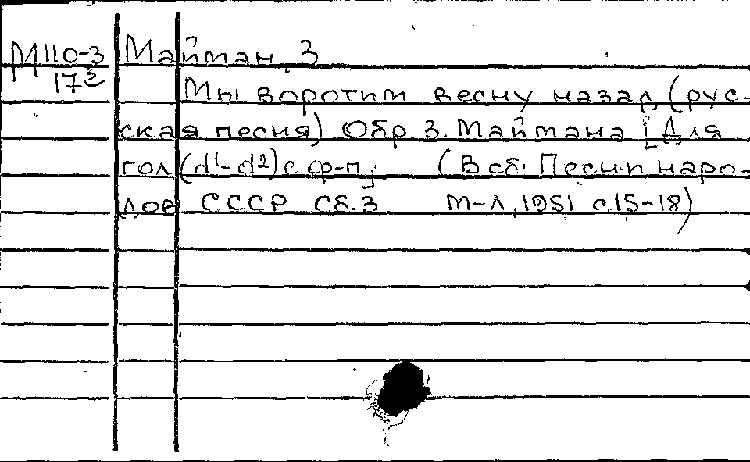 М110-3 Майман, З
173 Мы воротим весну назад, (рус-
ская песня) Обр З. Маймана [Для
гол (d¹-d²) с ф-п] (В сб. Песни наро-
дов СССР Сб.3 М-Л, 1951 с.15-18)